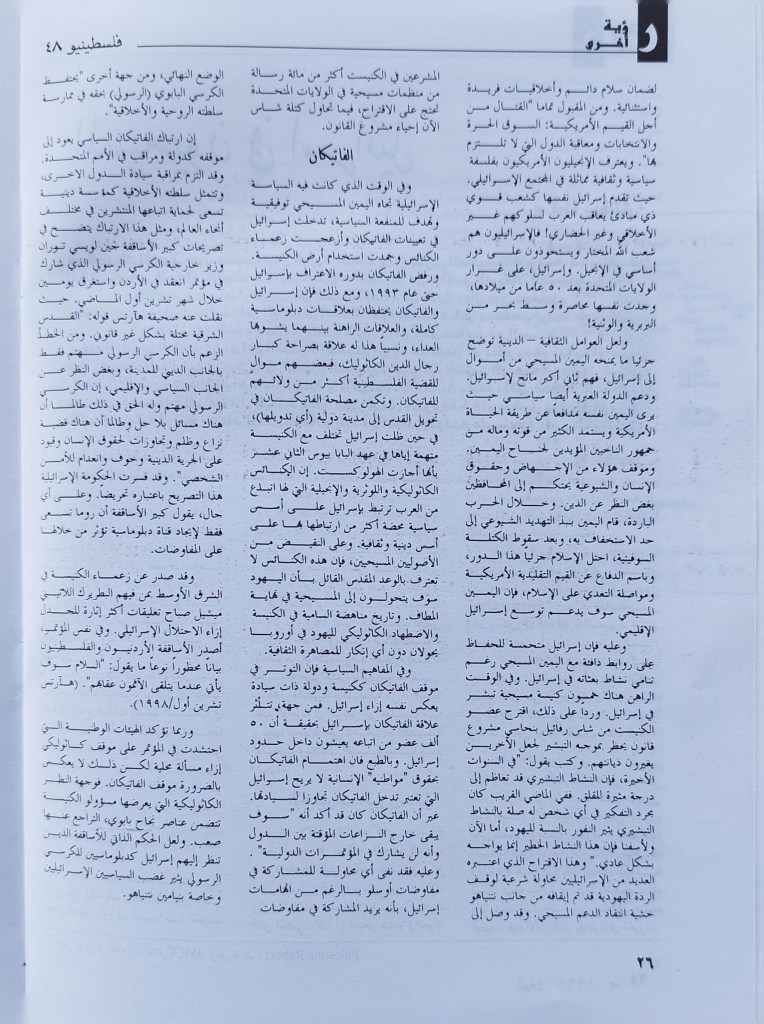 رؤية
أخرى
فلسطينيو ٤٨
لضمان سلام دائم وأخلاقيات فريدة
واستثنائية. ومن المقبول تماما "القتال من
أجل القيم الأمريكية: السوق الحرة
والانتخابات ومعاقبة الدول التي لا تلتزم
بها". ويعترف الإنجيليون الأمريكيون بفلسفة
سياسية وثقافية مماثلة في المجتمع الإسرائيلي.
حيث تقدم إسرائيل نفسها كشعب قوي
ذي مبادئ يعاقب العرب لسلوكهم غير
الأخلاقي وغير الحضاري! فالإسرائيليون هم
شعب الله المختار ويستحوذون على دور
أساسي في الإنجيل. وإسرائيل، على غرار
الولايات المتحدة بعد ٥٠ عاما من ميلادها،
وجدت نفسها محاصرة وسط بحر من
البربرية والوثنية!
ولعل العوامل الثقافية – الدينية توضح
جزئيا ما يمنحه اليمين المسيحي من أموال
إلى إسرائيل، فهم ثاني أكبر مانح لإسرائيل.
ودعم الدولة العبرية أيضا سياسي حيث
يرى اليمين نفسه مدافعا عن طريقة الحياة
الأمريكية ويستمد الكثير من قوته وماله من
جمهور الناخبين المؤيدين لجناح اليمين.
وموقف هؤلاء من الإجهاض وحقوق
الإنسان والشيوعية يحتكم إلى المحافظين
بغض النظر عن الدين. وخلال الحرب
الباردة، قام اليمين بنبذ التهديد الشيوعي إلى
حد الاستخفاف به، وبعد سقوط الكتلة
السوفيتية، احتل الإسلام جزئيا هذا الدور،
وباسم الدفاع عن القيم التقليدية الأمريكية
ومواصلة التعدي على الإسلام، فإن اليمين
المسيحي سوف يدعم توسع إسرائيل
الإقليمي.
وعليه فإن إسرائيل متحمسة للحفاظ
على روابط دافئة مع اليمين المسيحي رغم
تنامي نشاط بعثاته في إسرائيل. وفي الوقت
الراهن هناك خمسون كنيسة مسيحية تبشر
في إسرائيل. وردا على ذلك، اقترح عضو
الكنيست من شاس رفائيل بنحاسي مشروع
قانون يحظر بموجبه التبشير لجعل الآخرين
يغيرون دياناتهم. وكتب يقول: "في السنوات
الأخيرة، فإن النشاط التبشيري قد تعاظم إلى
درجة مثيرة للقلق. ففي الماضي القريب كان
مجرد التفكير في أي شخص له صلة بالنشاط
التبشيري يثير النفور بالنسبة لليهود، أما الآن
ولأسفنا فإن هذا النشاط الخطير إنما يواجه
بشكل عادي." وهذا الاقتراح الذي اعتبره
العديد من الإسرائيليين محاولة شرعية لوقف
الردة اليهودية قد تم إيقافه من جانب نتنياهو
خشية انتقاد الدعم المسيحي. وقد وصل إلى
المشرعين في الكنيست أكثر من مائة رسالة
من منظمات مسيحية في الولايات المتحدة
تحتج على الاقتراح، فيما تحاول كتلة شاس
الآن إحياء مشروع القانون.
الفاتيكان
وفي الوقت الذي كانت فيه السياسة
الإسرائيلية تجاه اليمين المسيحي توفيقية
وتهدف للمنفعة السياسية، تدخلت إسرائيل
في تعيينات الفاتيكان وأزعجت زعماء
الكنائس وجمدت استخدام أرض الكنيسة.
ورفض الفاتيكان بدوره الاعتراف بإسرائيل
حتى عام ١٩٩٣، ومع ذلك فإن إسرائيل
والفاتيكان يحتفظان بعلاقات دبلوماسية
كاملة، والعلاقات الراهنة بينهما يشوبها
العداء، ونسبيا هذا له علاقة بصراحة كبار
رجال الدين الكاثوليك، فبعضهم موال
للقضية الفلسطينية أكثر من ولائهم
للفاتيكان. وتكمن مصلحة الفاتيكان في
تحويل القدس إلى مدينة دولية (أي تدويلها)،
في حين ظلت إسرائيل تختلف مع الكنيسة
متهمة إياها في عهد البابا بيوس الثاني عشر
بأنها أجازت الهولوكست. إن الكنائس
الكاثوليكية واللوثرية والإنجيلية التي لها اتباع
من العرب ترتبط بإسرائيل على أسس
سياسية محضة أكثر من ارتباطها بها على
أسس دينية وثقافية. وعلى النقيض من
الأصوليين المسيحيين، فإن هذه الكنائس لا
تعترف بالوعد المقدس القائل بأن اليهود
سوف يتحولون إلى المسيحية في نهاية
المطاف. وتاريخ مناهضة السامية في الكنيسة
والاضطهاد الكاثوليكي لليهود في أوروبا
يحولان دون أي إنكار للمصاهرة الثقافية.
وفي المفاهيم السياسية فإن التوتر في
موقف الفاتيكان ككنيسة ودولة ذات سيادة
يعكس نفسه إزاء إسرائيل. فمن جهة، تتأثر
علاقة الفاتيكان بإسرائيل بحقيقة أن ٥٠
ألف عضو من اتباعه يعيشون داخل حدود
إسرائيل. وبالطبع فان اهتمام الفاتيكان
بحقوق "مواطنيه" الإنسانية لا يريح إسرائيل
التي تعتبر تدخل الفاتيكان تجاوزا لسيادتها.
غير أن الفاتيكان كان قد أكد أنه "سوف
يبقى خارج النزاعات المؤقتة بين الدول
وأنه لن يشارك في المؤتمرات الدولية".
وعليه فقد نفى أي محاولة للمشاركة في
مفاوضات أوسلو بالرغم من اتهامات
إسرائيل، بأنه يريد المشاركة في مفاوضات
الوضع النهائي، ومن جهة أخرى "يحتفظ
الكرسي البابوي (الرسولي) بحقه في ممارسة
سلطته الروحية والأخلاقية".
إن ارتباك الفاتيكان السياسي يعود إلى
موقفه كدولة ومراقب في الأمم المتحدة.
وقد التزم بمراقبة سيادة الدول الاخرى،
وتتمثل سلطته الأخلاقية كمؤسسة دينية
تسعى لحماية اتباعها المنتشرين في مختلف
أنحاء العالم، ومثل هذا الارتباك يتضح في
تصريحات كبير الأساقفة جين لويسي توران
وزير خارجية الكرسي الرسولي الذي شارك
في مؤتمر انعقد في الأردن واستغرق يومين
خلال شهر تشرين أول الماضي. حيث
نقلت عنه صحيفة هآرتس قوله: "القدس
الشرقية محتلة بشكل غير قانوني. ومن الخطأ
الزعم بأن الكرسي الرسولي مهتم فقط
بالجانب الديني للمدينة، وبغض النظر عن
الجانب السياسي والإقليمي، إن الكرسي
الرسولي مهتم وله الحق في ذلك طالما أن
هناك مسائل بلا حل وطالما أن هناك قضية
نزاع وظلم وتجاوزات لحقوق الإنسان وقيود
على الحرية الدينية وخوف وانعدام للأمن
الشخصي". وقد فسرت الحكومة الإسرائيلية
هذا التصريح باعتباره تحريضا. وعلى أي
حال، يقول كبير الأساقفة أن روما تسعى
فقط لإيجاد قناة دبلوماسية تؤثر من خلالها
على المفاوضات.
وقد صدر عن زعماء الكنيسة في
الشرق الأوسط بمن فيهم البطريرك اللاتيني
ميشيل صباح تعليقات أكثر إثارة للجدل
إزاء الاحتلال الإسرائيلي. وفي نفس المؤتمر،
أصدر الأساقفة الأردنيون والفلسطينيون
بيانا محظورا نوعا ما يقول: "السلام سوف
يأتي عندما يتلقى الآثمون عقابهم". (هآرتس
تشرين أول/١٩٩٨).
وربما تؤكد الهيئات الوطنية التي
احتشدت في المؤتمر على موقف كاثوليكي
إزاء مسألة محلية لكن ذلك لا يعكس
بالضرورة موقف الفاتيكان. فوجهة النظر
الكاثوليكية التي يعرضها مسؤولو الكنيسة
تتضمن عناصر نجاح بابوي، التراجع عنها
صعب. ولعل الحكم الذاتي للأساقفة الذين
تنظر إليهم إسرائيل كدبلوماسيين للكرسي
الرسولي يثير غضب السياسيين الإسرائيليين
وخاصة بنيامين نتنياهو.
٢٦